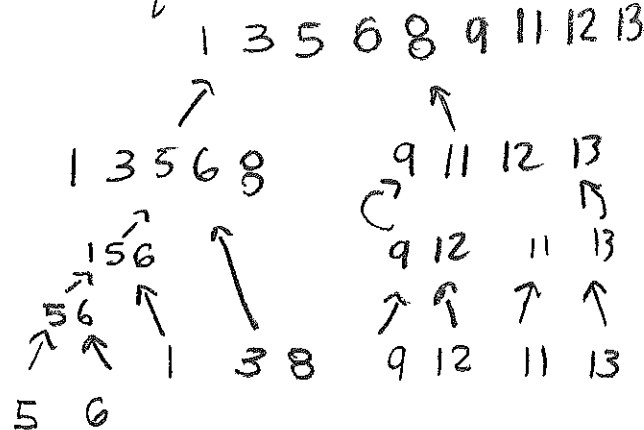 1 3 5 6 8 9 11 12 13
1 3 5 6 8 9 11 12 13
1 5 6 9 12 11 13
5 6
1 3 8 9 12 11 13
5 6